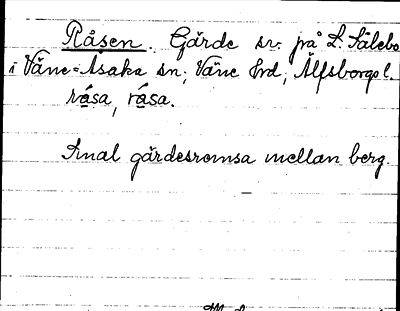 Råsen. Gärde sr. på L. Sälebo
i Väne-Åsaka sn; Väne hrd; Älfsborgs l.
råsa, råsa.
Smal gärdesremsa mellan berg.